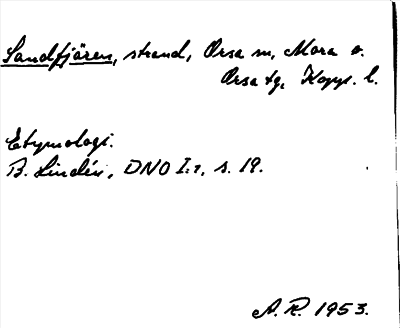 Sandfjären, strand, Orsa sn, Mora o.
Orsa tg, Kopp. l.
Etymologi.
B. Lindén, DNO I:1, s. 19.
A. R. 1953.